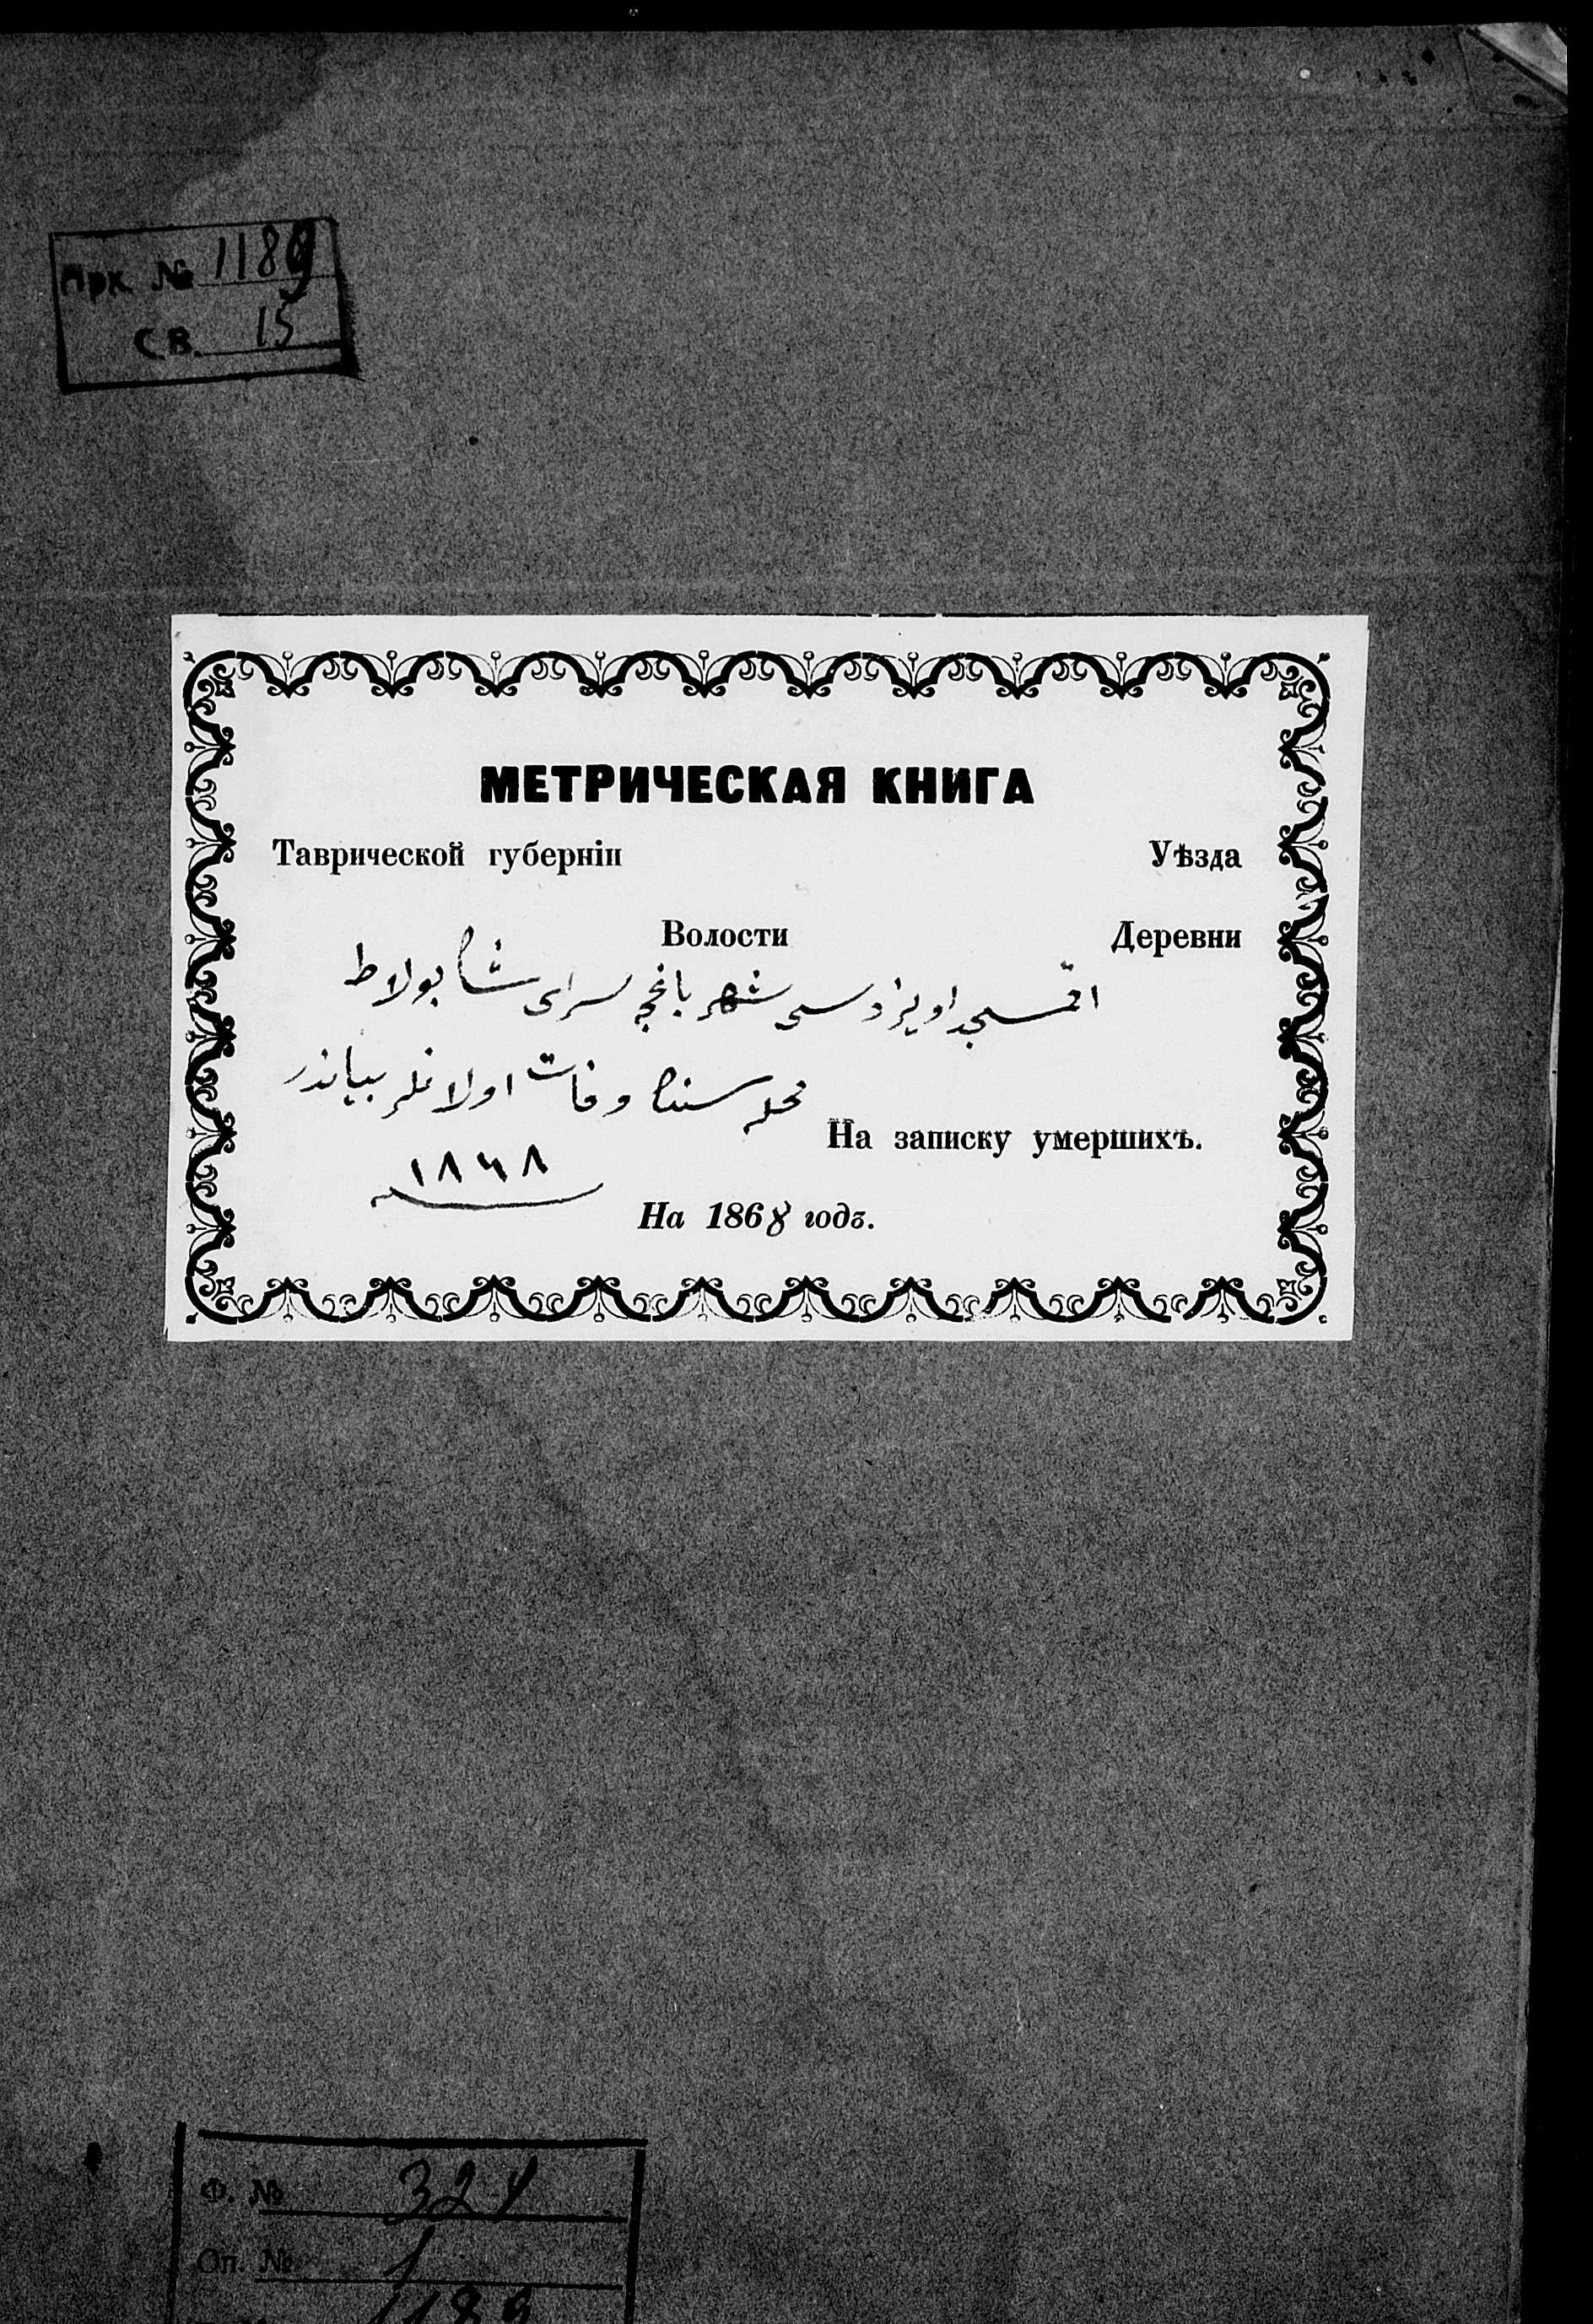 Арх. № 1189
С.В. 15
МЕТРИЧЕСКАЯ КНИГА
Таврической губерніи Уѣзда
Волости Деревни
اقمسجد اويزدسی شهر باغچه سرای شا بولاط
محله سنده وفات اولانلر بیانندر
На записку умершихъ.
١٨٦٨
На 1868 годъ.
Ф. № 324
Оп. № 1
1189